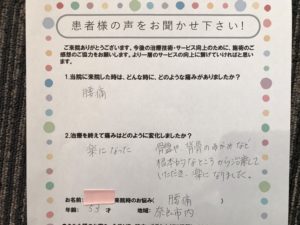 患者様の声をお聞かせ下さい!
ご来院ありがとうございます。今後の治療技術・サービス向上のために、施術のご
感想のご協力をお願いします。より一層のサービスの向上に繋げていければと思い
ます。
1.当院に来院した時は、どんな時に、どのような痛みがありましたか?
腰痛
2.治療を終えて痛みはどのように変化しましたか?
楽になった 骨盤や 背骨のゆがみなど
根本的なところから治療して
いただき、楽になりました。
お名前: 来院時のお悩み( 腰痛 )
年齢: 53 才 地域: 奈良市内